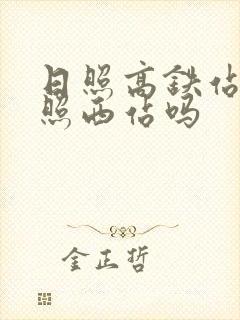 日照高铁佔
照西佔吗
金正哲